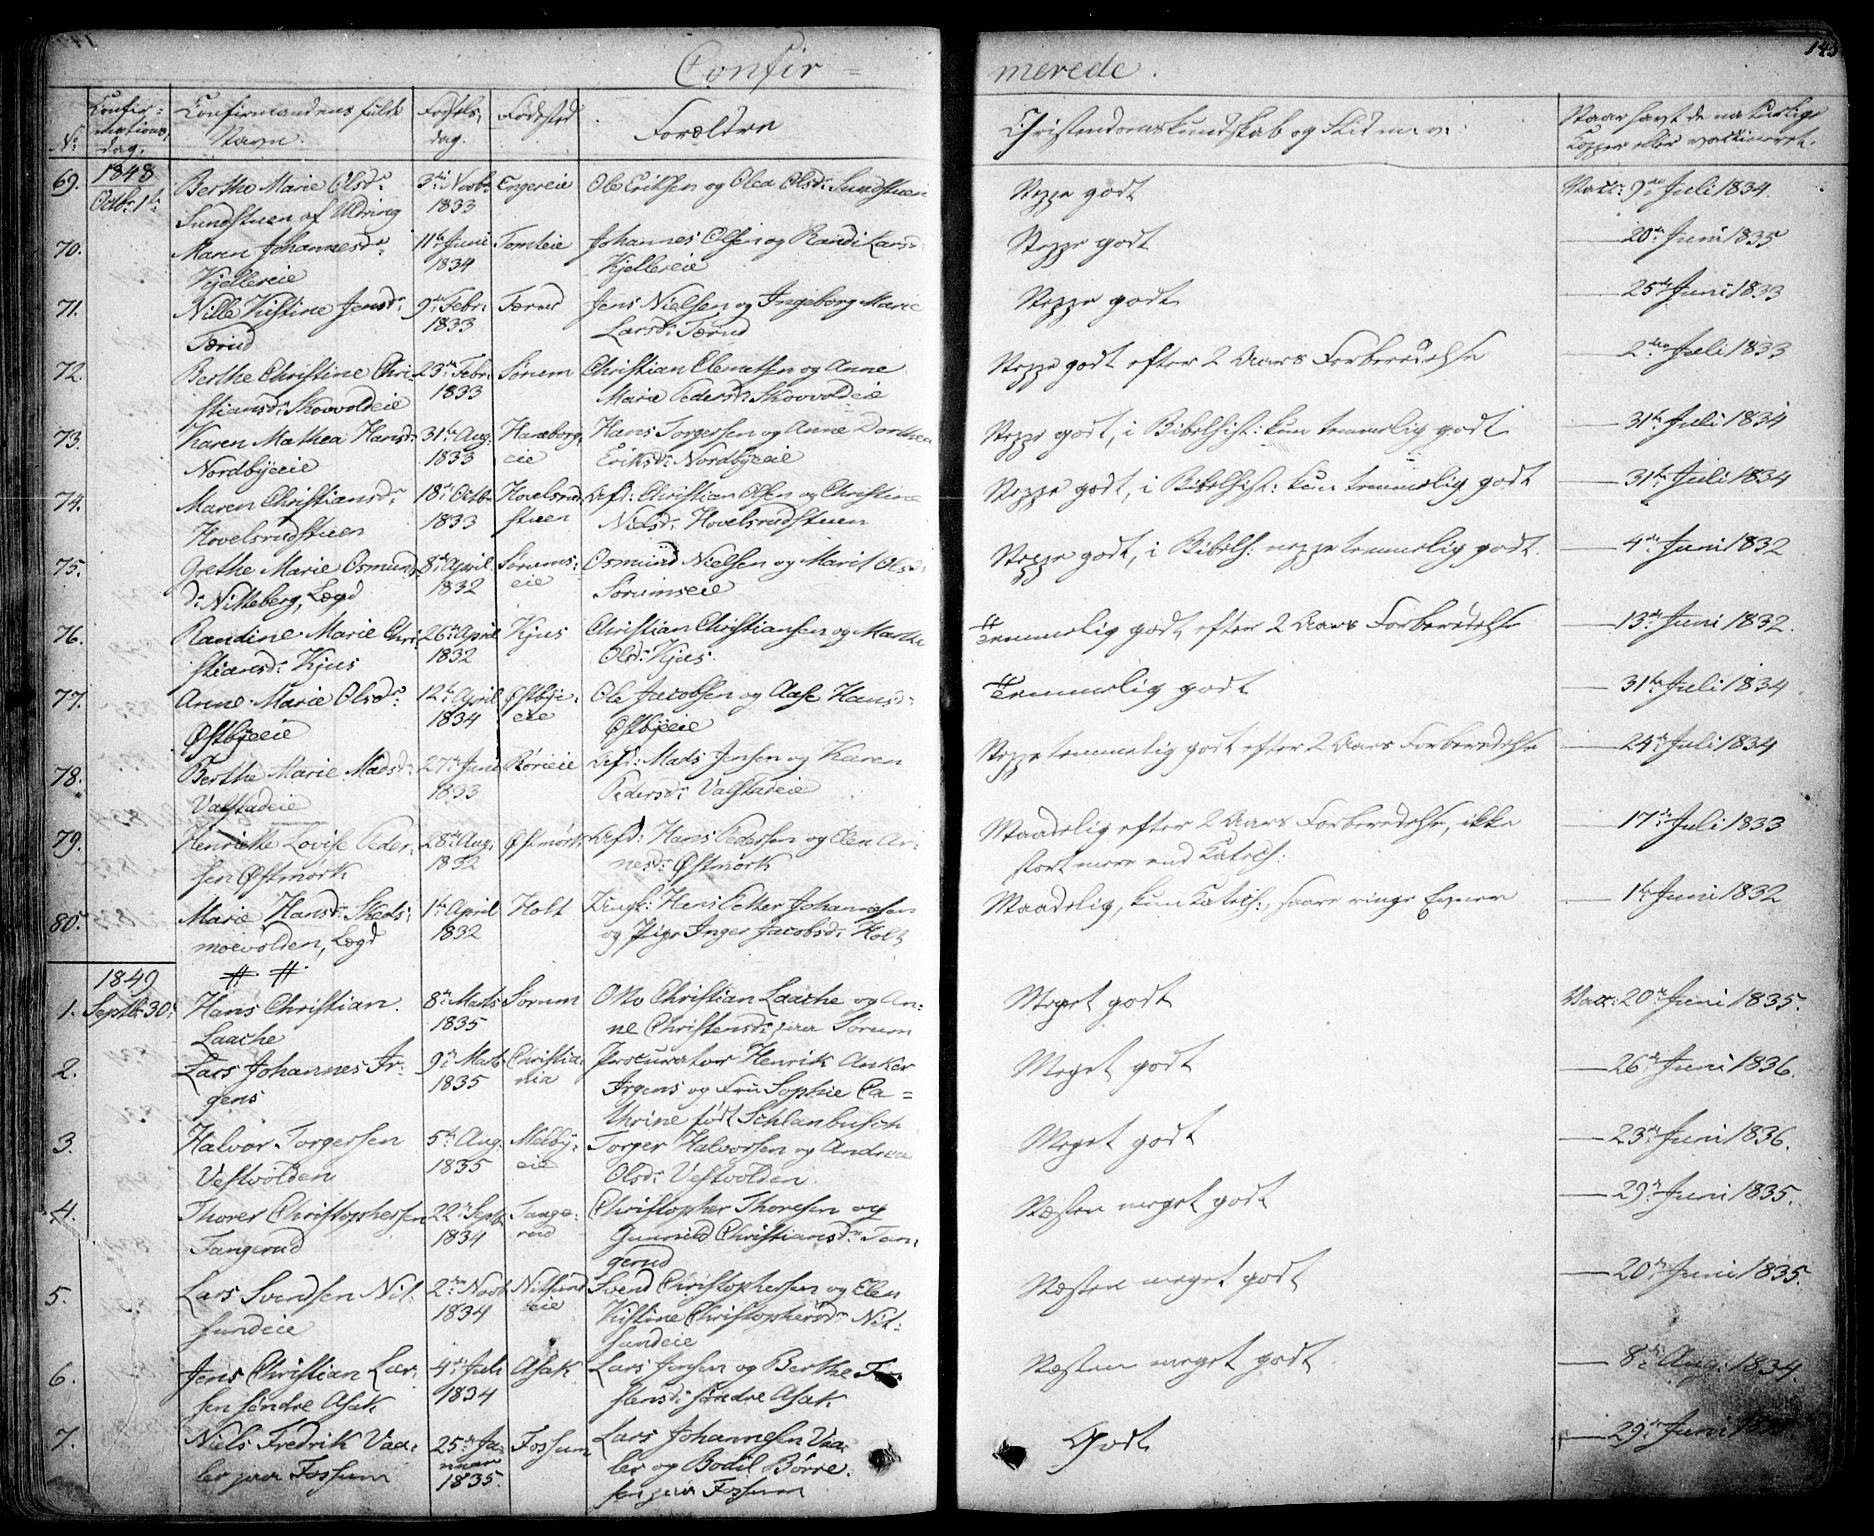 Confir=
merede.
143
No
Confir=
mations
dag.
Confirmandens fulde
Navn.
Fødsels,
dag.
Fødested.
Forældre
Christendomskundskab og Flid m. v:
havt de naturlige
Kopper eller vaccineret.
69.
1848
Octbr. 1ste
Berthe Marie Olsdr.
Sundstuen af Uldring
3die Novbr.
1833
Engereie
Ole Eriksen og Olea Olsdr. Sundstuen
Neppe godt
Vacc: 9de Juli 1834.
70.
Maren Johannesdr.
Kjellereie
11te Juni
1834
Tomteie
Johannes Olsen og Randi Larsd
Kjellereie
Neppe godt
— 20de Juni 1835
71.
Nille Kistine Jensdr.
Tærud
9de Febr.
1833
Tærud
Jens Nielsen og Ingeborg Marie
Larsdr. Tærud
Neppe godt
— 25de Juni 1833
72.
Berthe Christine Chri-
stiansdr. Skovvoldeie
23de Febr.
1833
Sørum
Christian Clemetsen og Anne
Marie Pedersdr. Skovvoldeie
Neppe godt efter 2 Aars Forberedelse
— 2den Juli 1833
73.
Karen Mathea Hansd:
Nordbyeie
31te Aug.
1833
Haneborg,
eie
Hans Torgersen og Anne Dorthea
Eriksdr. Nordbyeie
Neppe godt, i Bibelhist: kun temmelig godt
— 31te Juli 1834
74.
Maren Christiansdr.
Hovelsrudstuen
18de Octbr
1833
Hovelsrud
stuen
Afd: Christian Olsen og Christine
Nilsdr. Hovelsrudstuen
Neppe godt, i Bibelhist: kun temmelig godt
— 31te Juli 1834
75.
Grethe Marie Osmunds
dr. Nitteberg, Lægd
8de April
1832
Sørums=
eie
Osmund Nielsen og Marit Olsd:
Sørumseie
Neppe godt, i Bibelh: neppe temmelig godt.
— 4de Juni 1832
76.
Randine Marie Chri-
stiansdr. Kjus
26de April
1832
Kjus
Christian Christiansen og Marthe
Olsdr. Kjus.
Temmelig godt efter 2 Aars Forberedelse
— 13de Juni 1832.
77.
Anne Marie Olsdr.
Østbyeie
12te April
1834
Østbye-
eie
Ole Jacobsen og Aase Hansd:
Østbyeie
Temmelig godt
— 31te Juli 1834
78.
Berthe Marie Madsdr.
Valstadeie
27de Juni
1833
Røreie
Afd: Mads Jensen og Karen
Pedersdr. Valstadeie
Neppe temmelig godt efter 2 Aars Forberedelse
— 24de Juli 1834
79.
Henriette Lovise Peder-
sen Østmørk
28de Aug.
1832
Østmørk
Afd: Hans Pedersen og Elen Ar-
nesdr. Østmørk
Maadelig efter 2 Aars Forberedelse, ikke
stort mere end Catech:
— 17de Juli 1833
80.
Marie Hansdr. Skeds-
moevolden, Lægd
1ste April
1832
Holt
Ungk: Hans Petter Johannesen
og Pige Inger Jacobsdr. Holt
Maadelig, kun Catech:, saare ringe Evner
— 1ste Juni 1832
1849
1.
Septbr 30.
Hans Christian
Laache
8de Marts
1835
Sørum
Otto Christian Laache og An-
ne Christensdr. paa Sørum
Meget godt
Vacc: 20de Juni 1835.
2.
Lars Johannes Ir-
gens
9de Marts
1835
Christia-
nia
Procurator Henrik Anker
Irgens og Fru Sophie Ca=
thrine født Schlanbusch
Meget godt
— 26de Juni 1836.
3.
Halvor Torgersen
Vestvolden
5te Aug.
1835
Melby-
eie
Torger Halvorsen og Andrea
Olsdr. Vestvolden
Meget godt
— 23de Juni 1836.
4.
Thorer Christophersen
Tangerud
22de Septbr
1834
Tange-
rud
Christopher Thoresen og
Gunnild Christiansdr. Tan-
gerud
Næsten meget godt
— 29de Juni 1835.
5.
Lars Svendsen Nit-
sundeie
2den Novbr
1834
Nitsund
eie
Svend Christophersen og Elen
Kistine Christophersdr. Nit-
sundeie
Næsten meget godt
— 20de Juni 1835.
6.
Jens Christian Lar-
sen søndre Asak
4de Juli
1834
Asak
Lars Jensen og Berthe
stensdr. søndre Asak
Næsten meget godt.
— 8de Aug. 1834.
7.
Niels Fredrik Vaa-
ler paa Fossum
25de Ja-
nuar
1835.
Fossum
Lars Johannesen Vaa-
ler og Bodil Børre.
sen paa Fossum
Godt
— 29de Juni